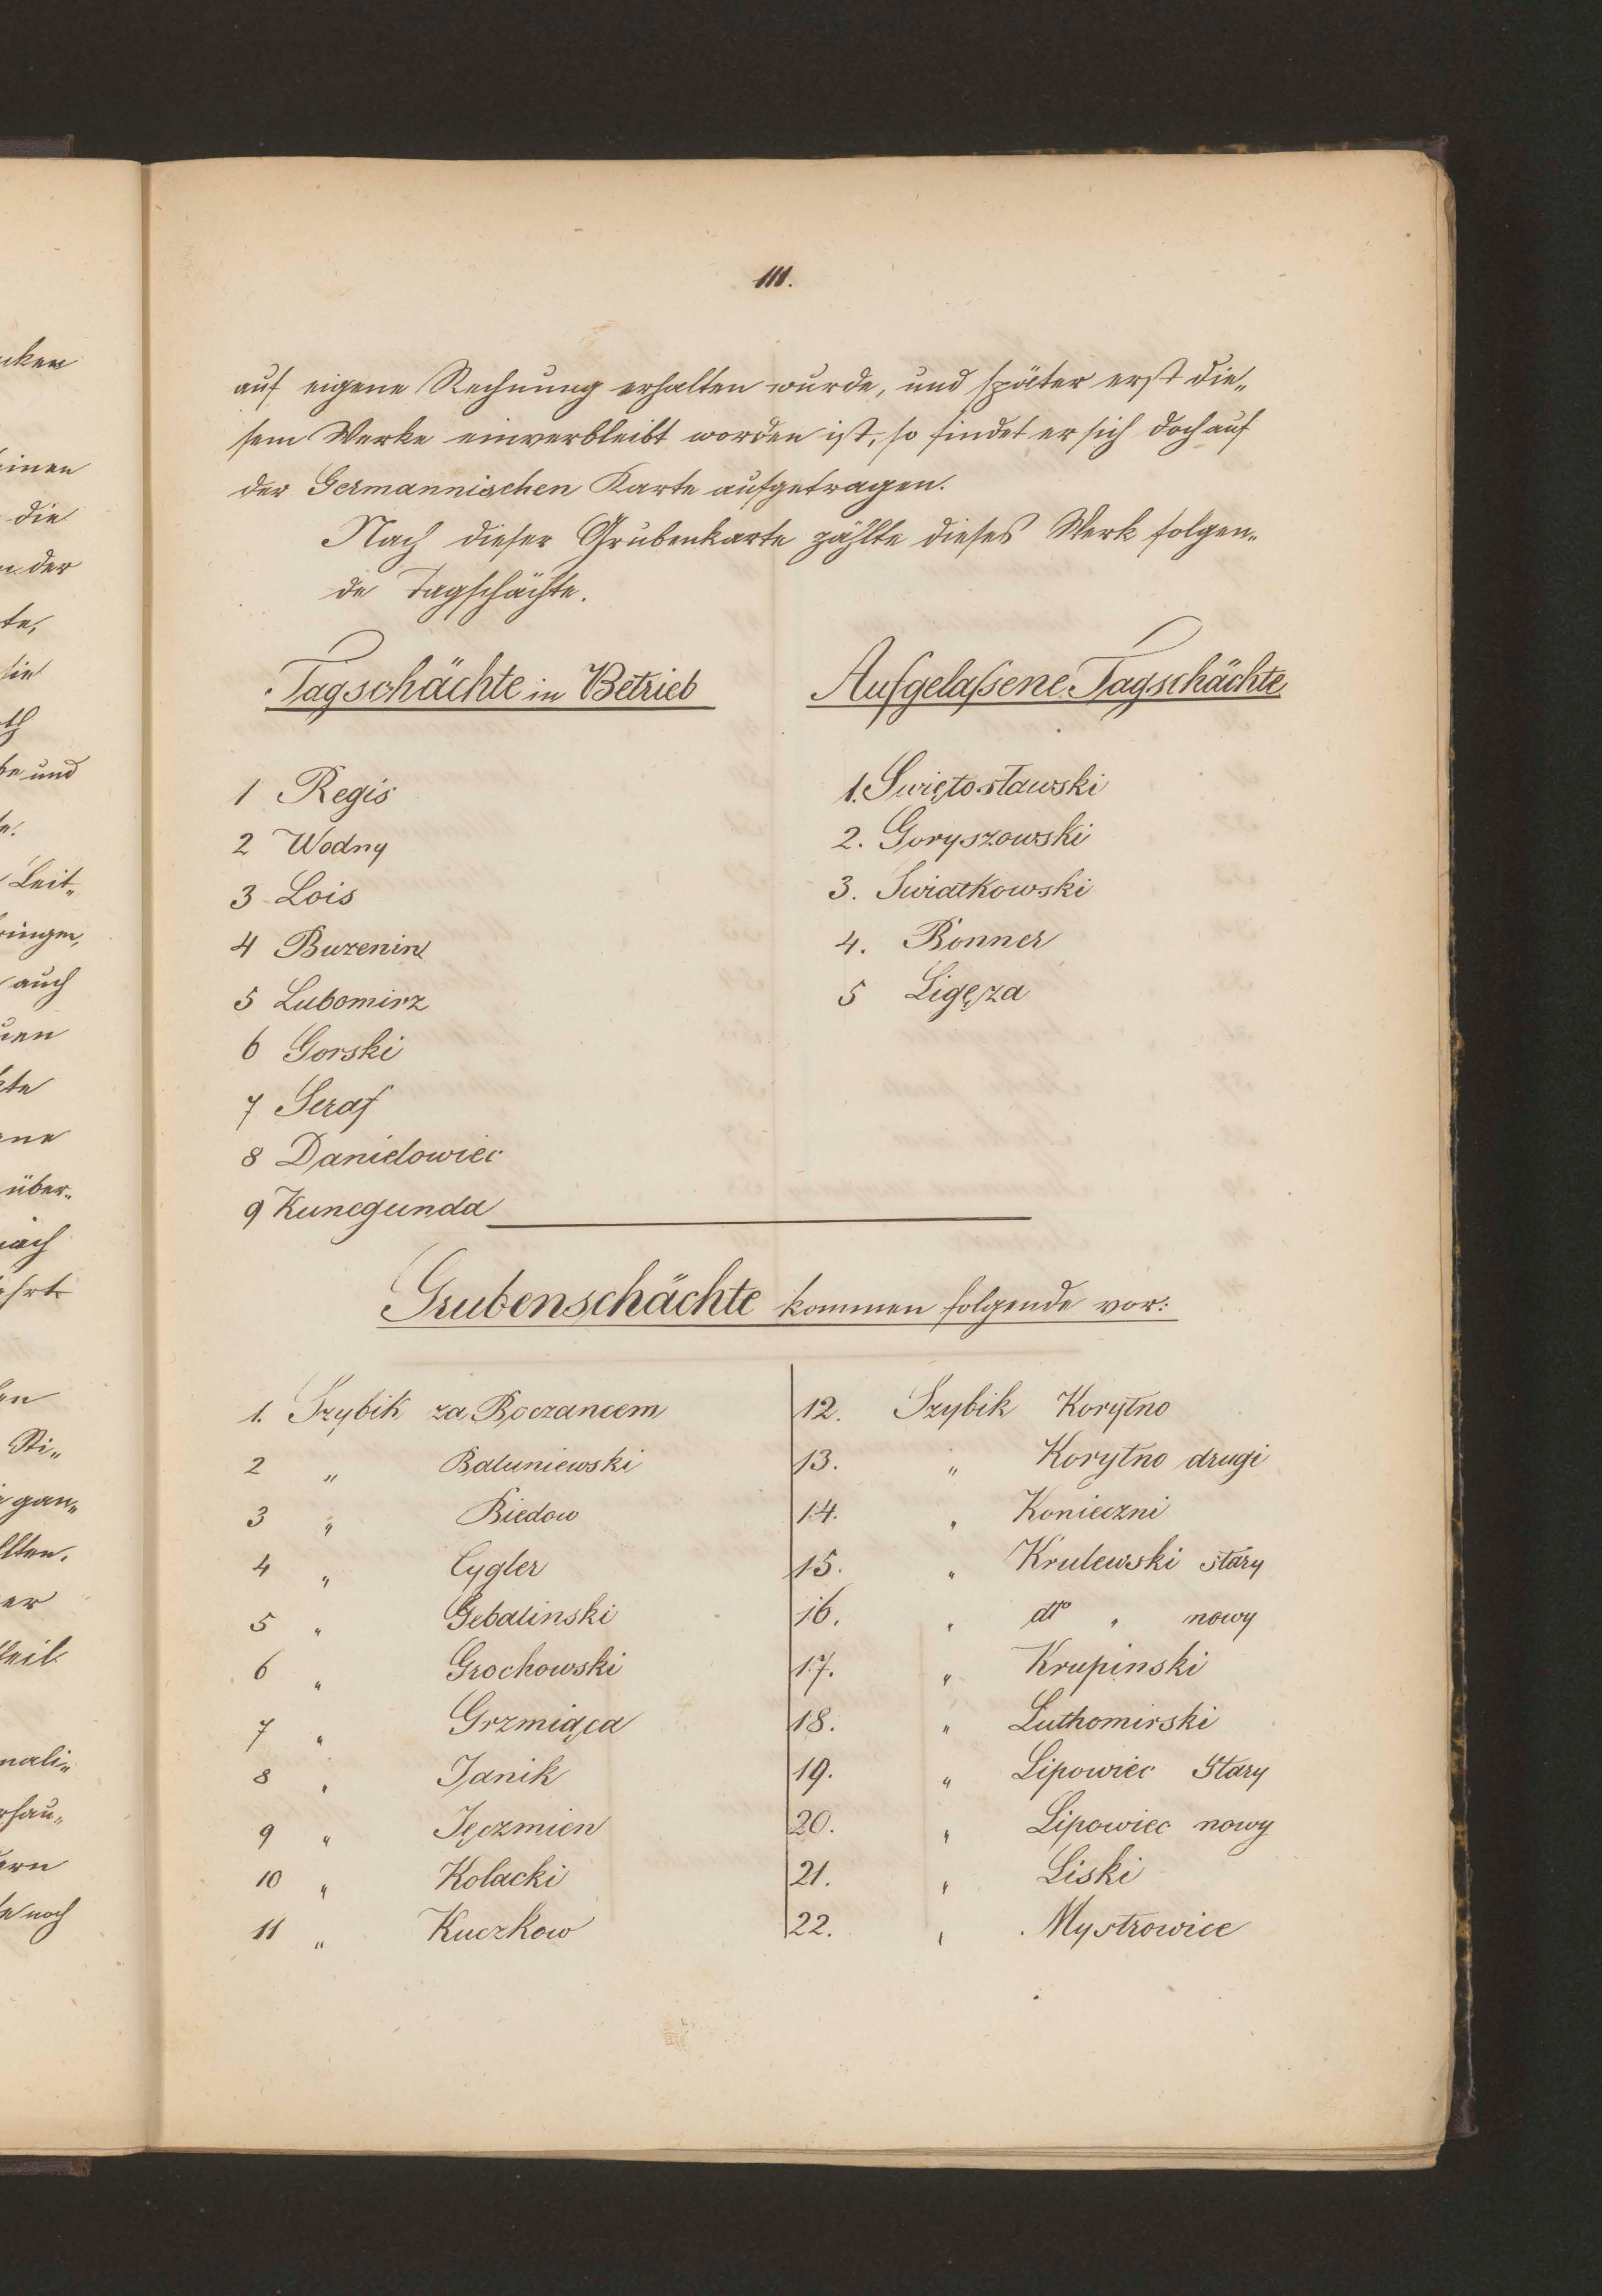 111.
auf eigene Rechnung erhalten wurde, und später erst die„
sem Werke einverbleibt worden ist, so findet er sich doch auf
der Germannischen Karte aufgetragen.
Nach dieser Grubenkarte zählte dieses Werk folgen„
de Tagschächte.
Tagschächte in Betrieb
1 Regis
2 Wodny
3 Lois
4 Buzenin
5 Lubomirz
6 Gorski
7 Seraf
8 Danielowiec
9 Kunegunda
Aufgelaſsene Tagschächte
1. Swiętosławski
2. Goryszowski
3. Swiatkowski
4. Bonner
5 Ligęza
Grubenschächte kommen folgende vor:
1. Szybik za Boczancem
2 „ Baluniewski
3 „ Biedow
4 „ Cygler
5 „ Gebalinski
6 „ Grochowski
7 „ Grzmiąca
8 „ Janik
9 „ Jęczmien
10 „ Kolacki
11 „ Kuczkow
12. Szybik Korytno
13. „ Korytno drugi
14. „ Konieczni
15. „ Krulewski stary
16. „ dto „ nowy
17. „ Krupinski
18. „ Luthomirski
19. „ Lipowiec Stary
20. „ Lipowiec nowy
21. „ Liski
22. „ Mystrowice
uken
einen
die
der
te,
sie
th
be und
Leit„
ringen,
auch
uen
kte
ene
über„
nach
ührt
en
Sti„
gan„
llten.
er
heil
mali„
rhau„
ern
noch